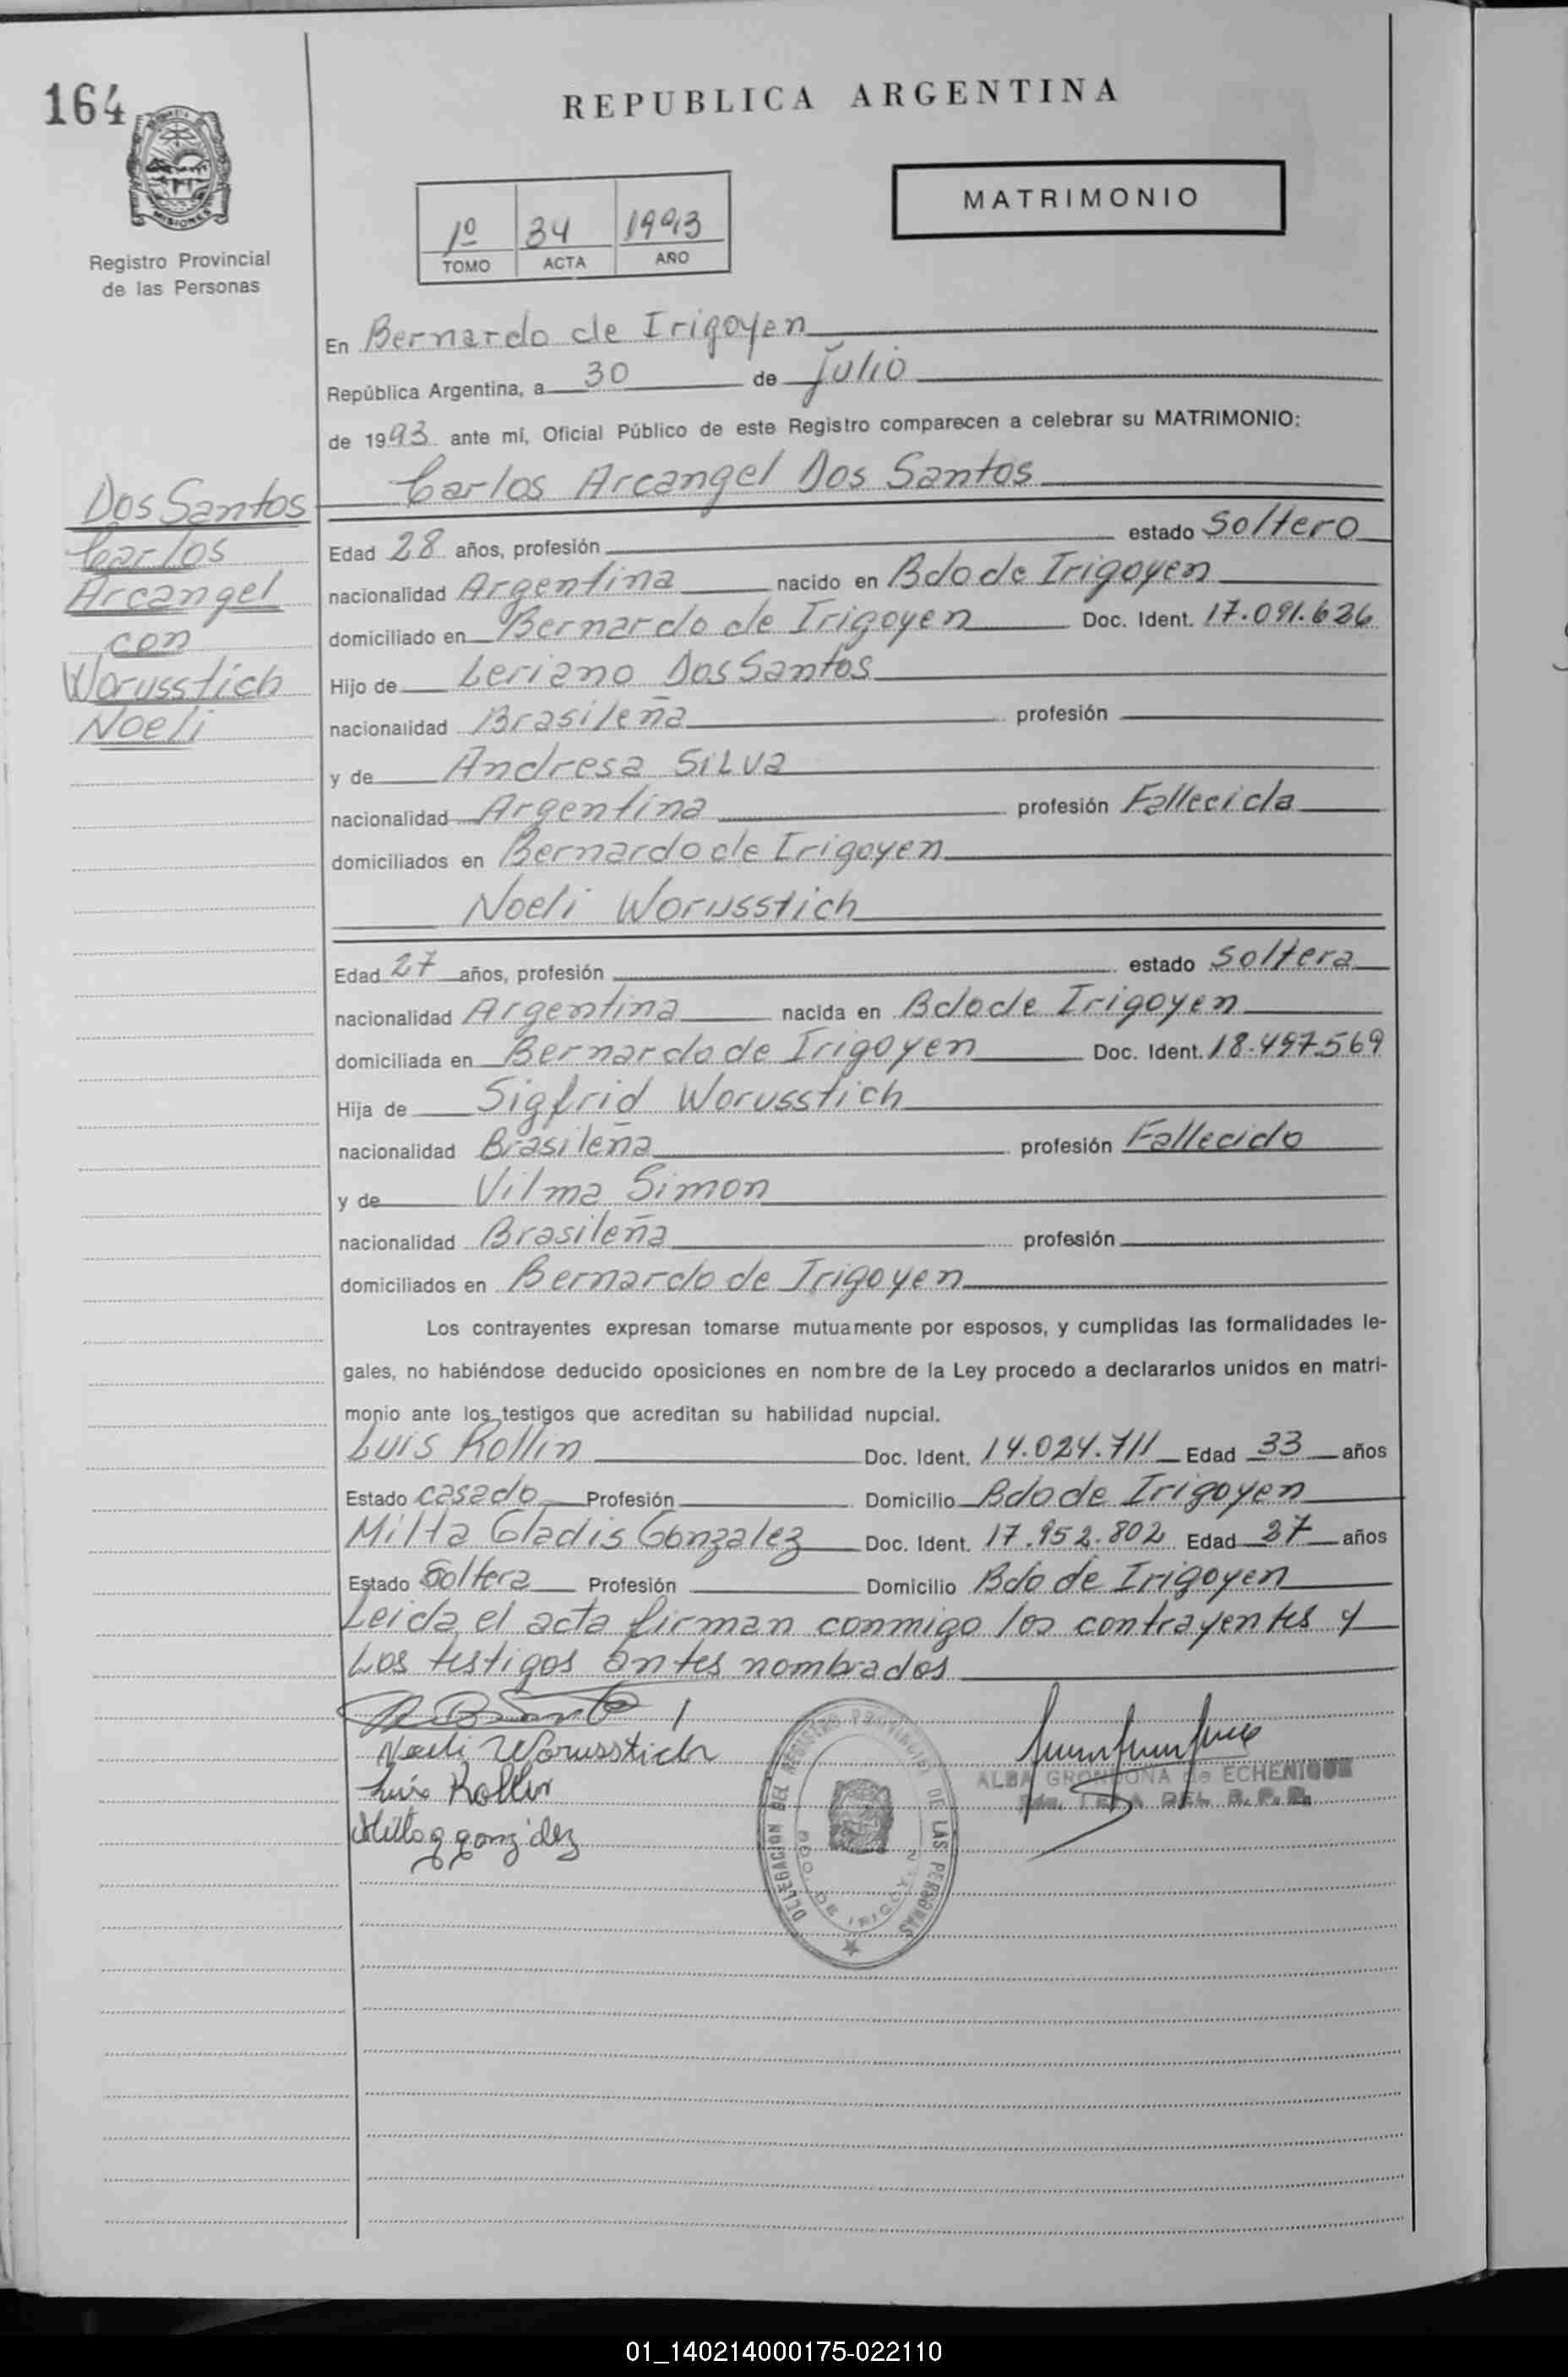 164
REPUBLICA ARGENTINA
MISIONES
Registro Provincial
de las Personas
1º 34 1993
TOMO ACTA AÑO
MATRIMONIO
En Bernardo de Irigoyen
República Argentina, a 30 de Julio
de 1993 ante mí, Oficial Público de este Registro comparecen a celebrar su MATRIMONIO:
Carlos Arcangel Dos Santos
Dos Santos
Carlos
Arcangel
con
Worusstich
Noeli
Edad 28 años, profesión estado Soltero
nacionalidad Argentina nacido en Bdo de Irigoyen
domiciliado en Bernardo de Irigoyen Doc. Ident. 17.091.636
Hijo de Leriano Dos Santos
nacionalidad Brasileña profesión
y de Andresa Silva
nacionalidad Argentina profesión Fallecida
domiciliados en Bernardo de Irigoyen
Noeli Worusstich
Edad 27 años, profesión estado Soltera
nacionalidad Argentina nacida en Bdo de Irigoyen
domiciliada en Bernardo de Irigoyen Doc. Ident. 18.497.569
Hija de Sigfrid Worusstich
nacionalidad Brasileña profesión Fallecido
y de Vilma Simon
nacionalidad Brasileña profesión
domiciliados en Bernardo de Irigoyen
Los contrayentes expresan tomarse mutuamente por esposos, y cumplidas las formalidades le-
gales, no habiéndose deducido oposiciones en nombre de la Ley procedo a declararlos unidos en matri-
monio ante los testigos que acreditan su habilidad nupcial.
Luis Rollin Doc. Ident. 14.024.711 Edad 33 años
Estado casado Profesión Domicilio Bdo de Irigoyen
Milta Gladis Gonzalez Doc. Ident. 17.952.802 Edad 27 años
Estado Soltera Profesión Domicilio Bdo de Irigoyen
Leida el acta firman conmigo los contrayentes y
Los testigos antes nombrados
Noeli Worusstich
Luis Rollin
Milta g gonzalez
DELEGACION DEL REGISTRO PROVINCIAL DE LAS PERSONAS
BDO. DE IRIGOYEN
ALBA GRONDONA de ECHENIQUE
DEL R.P.P.
01_140214000175-022110